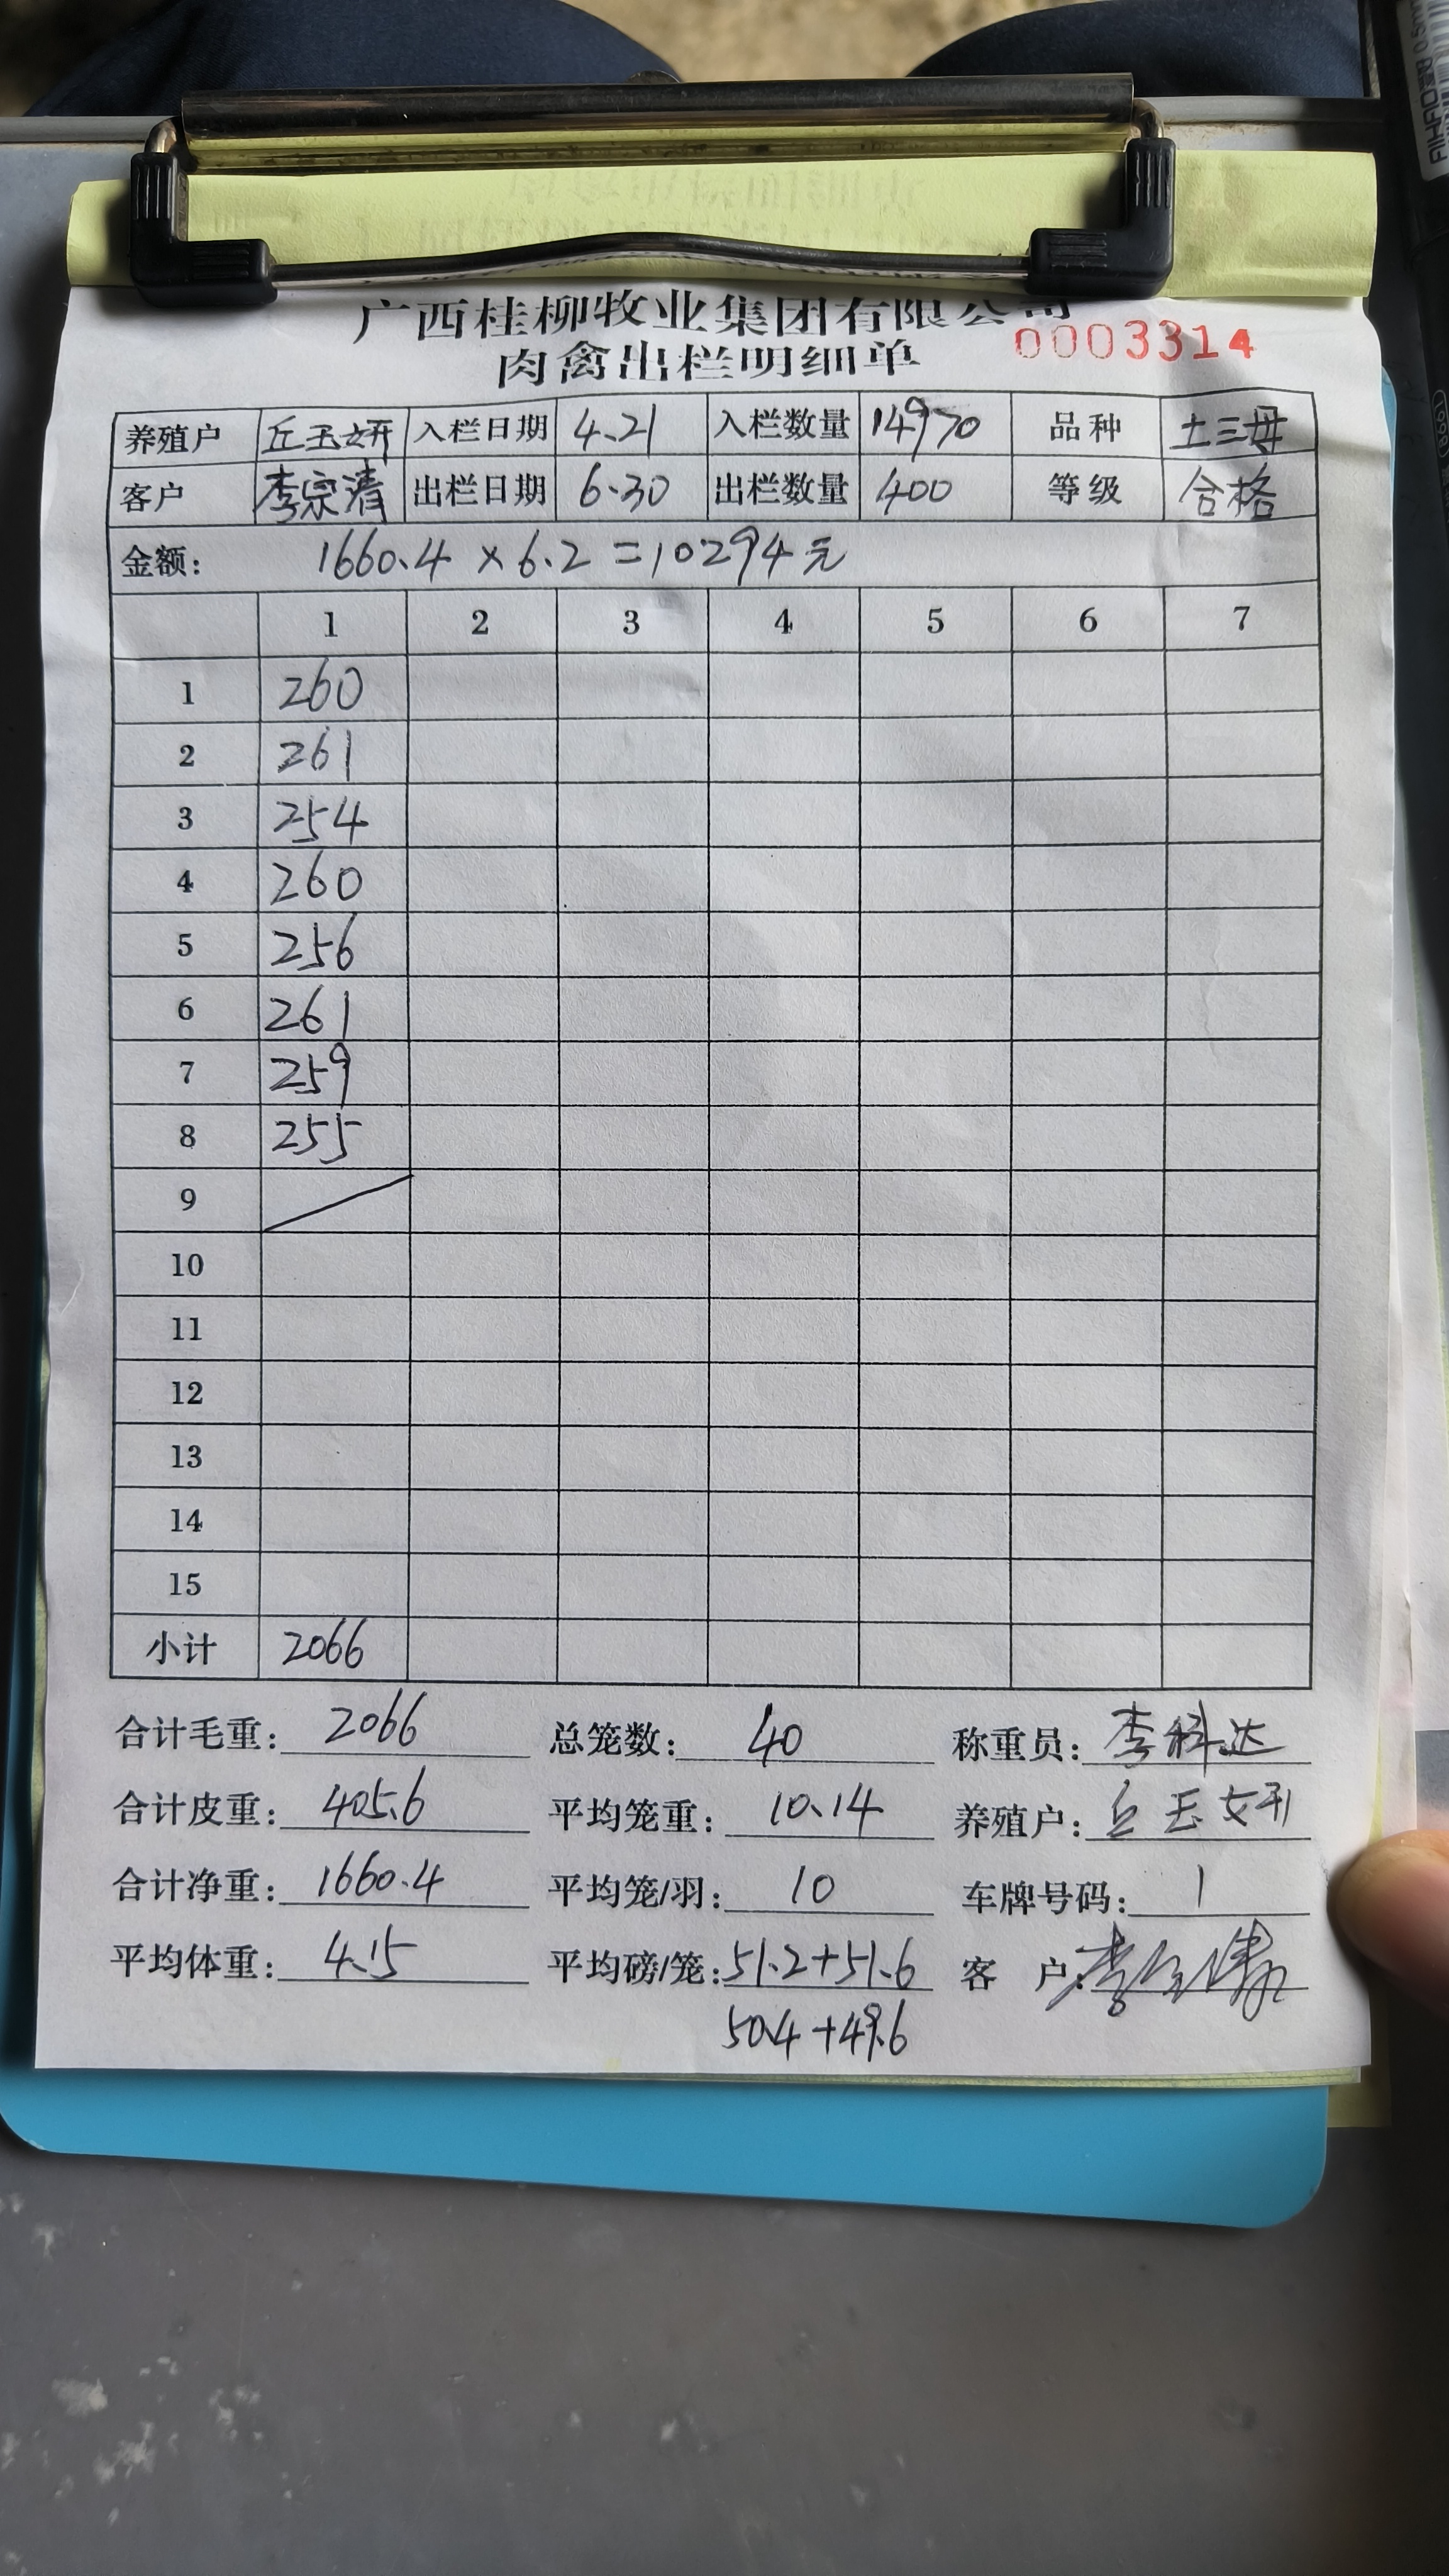 广西桂柳牧业集团有限公司
肉禽出栏明细单 0003314
养殖户 丘玉妍 入栏日期 4.21 入栏数量 14970 品种 土三母
客户 李宗清 出栏日期 6.30 出栏数量 400 等级 合格
金额: 1660.4 × 6.2 = 10294元
1 2 3 4 5 6 7
1 260
2 261
3 254
4 260
5 256
6 261
7 259
8 255
9
10
11
12
13
14
15
小计 2066
合计毛重: 2066 总笼数: 40 称重员: 李科达
合计皮重: 405.6 平均笼重: 10.14 养殖户: 丘玉妍
合计净重: 1660.4 平均笼/羽: 10 车牌号码: 1
平均体重: 4.15 平均磅/笼: 51.2+51.6 客 户:
50.4+49.6